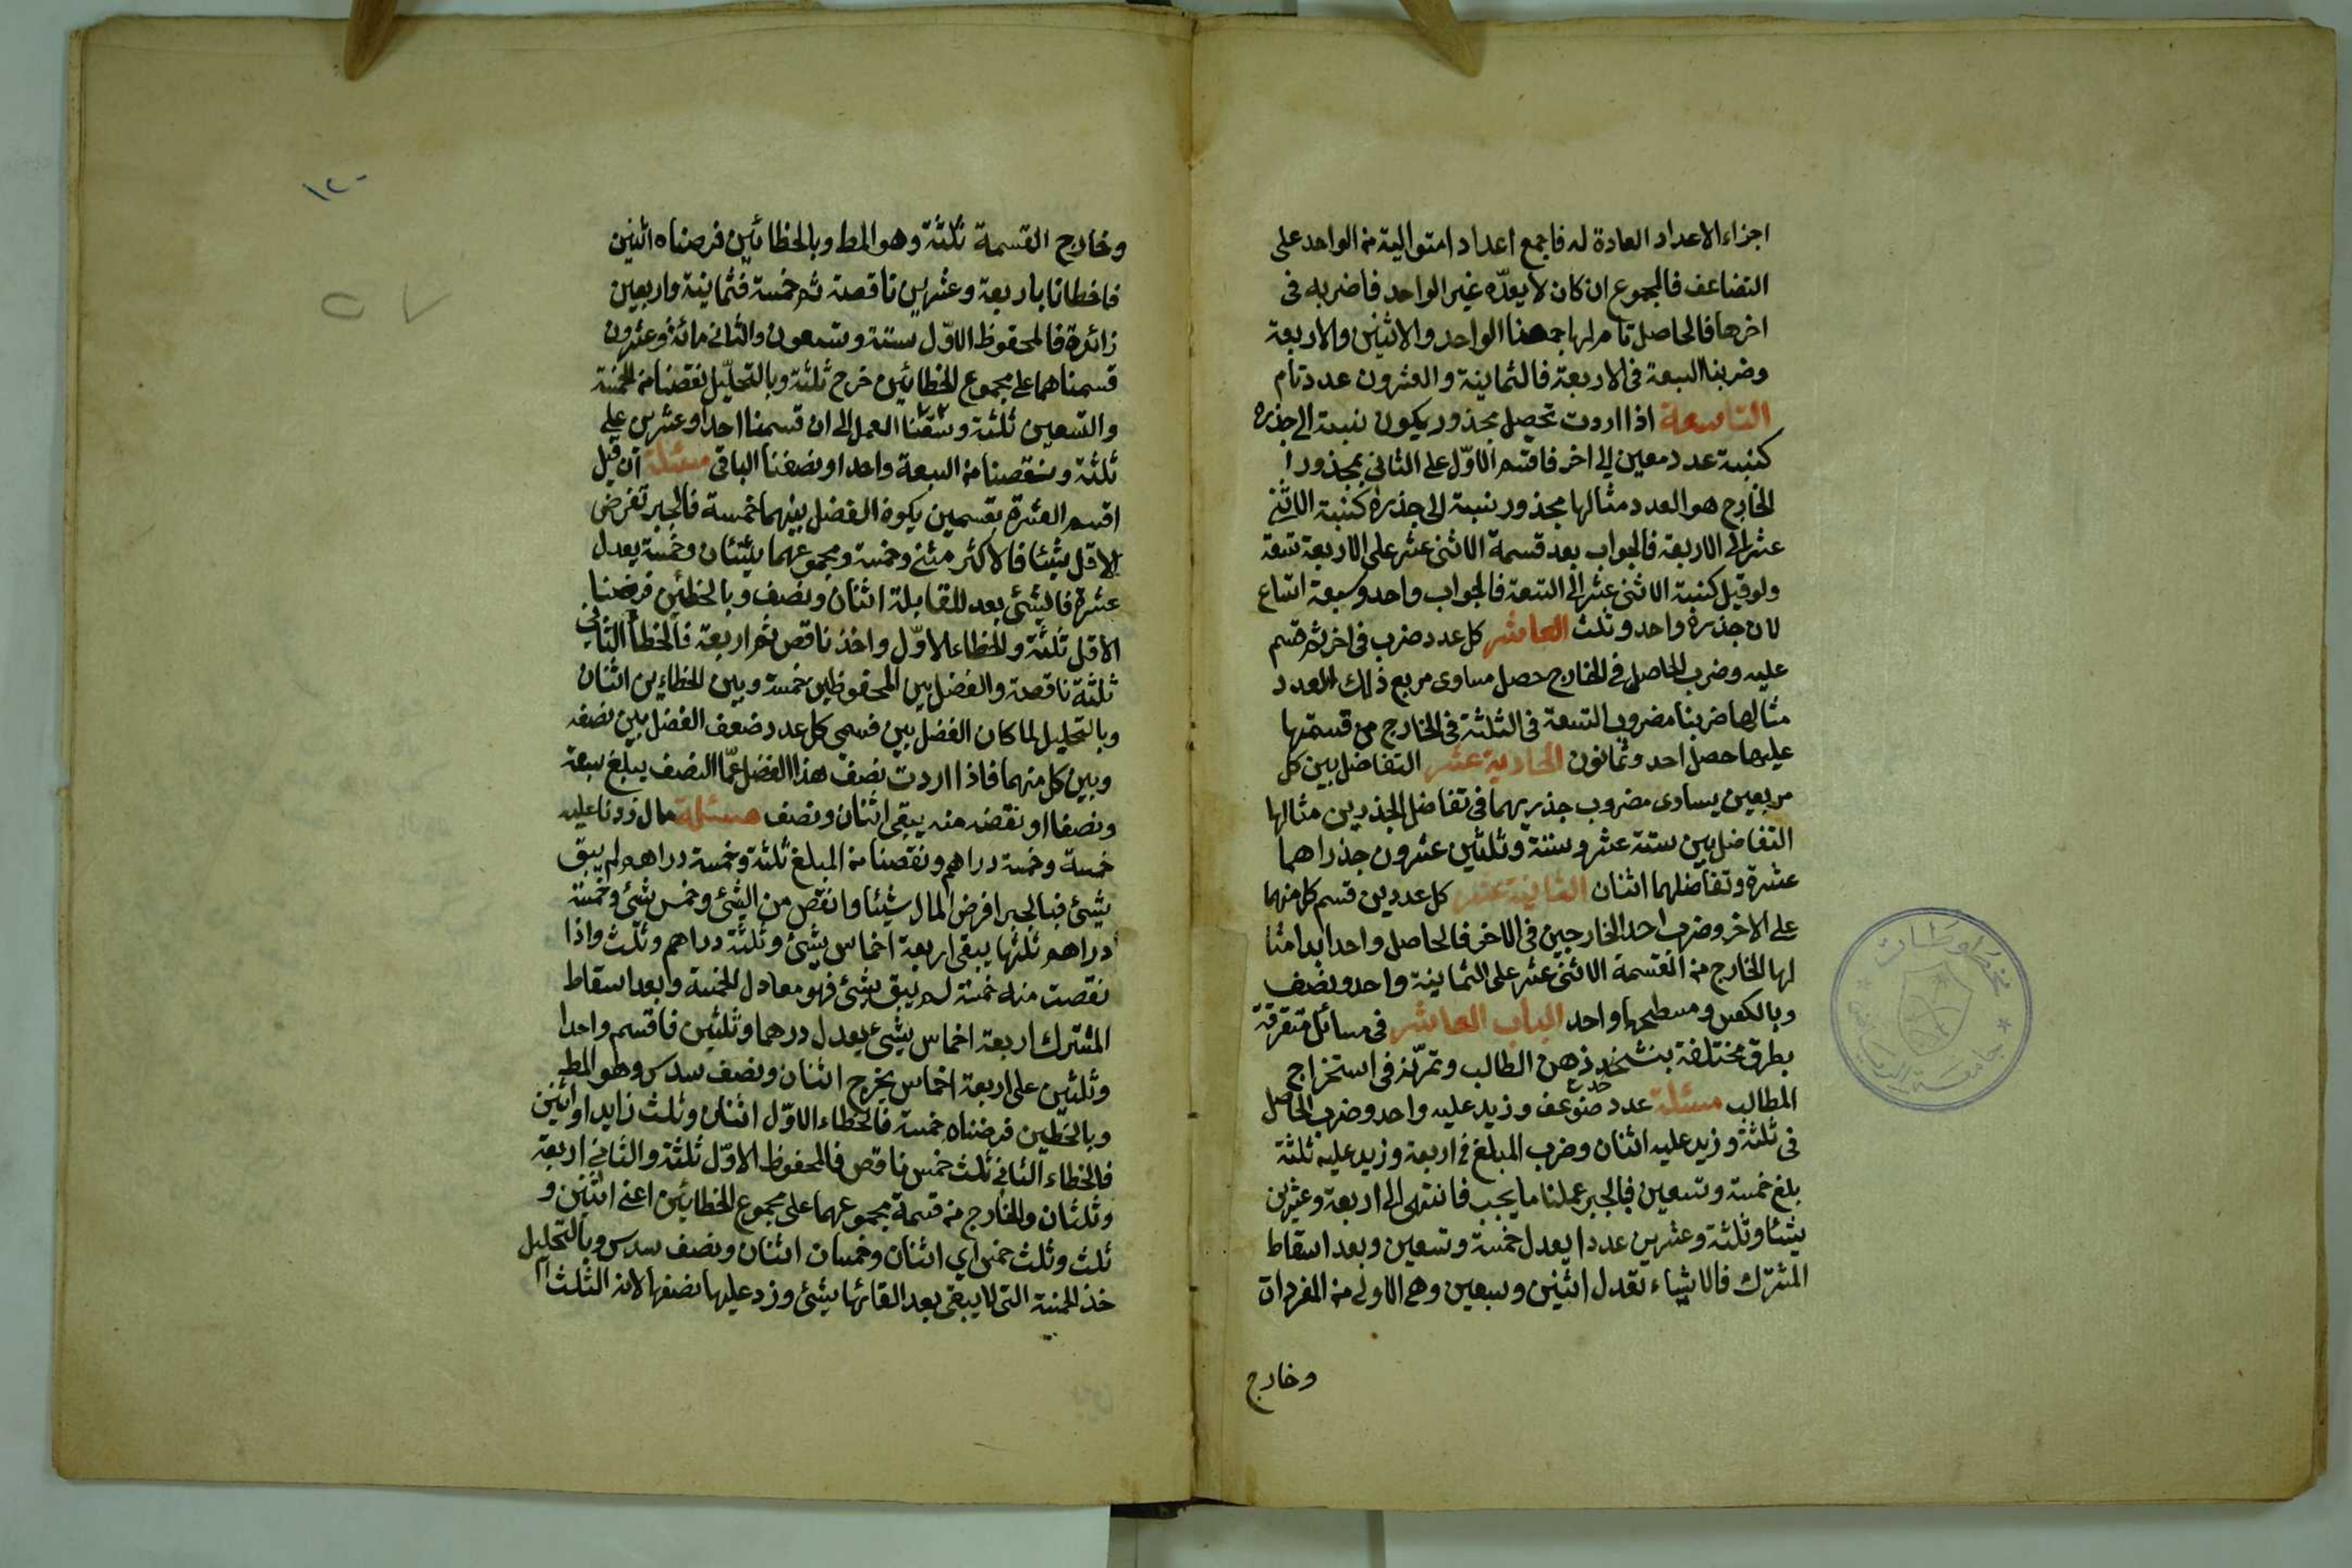 اجزاء الاعداد العادة له فاجمع اعدادا متوالية من الواحد على
التضاعف فالمجموع ان كان لا يعدّه غير الواحد فاضربه فى
اخرها فالحاصل تام مثالها جمعنا الواحد والاثنين والاربعة
وضربنا السبعة فى الاربعة فالثمانية والعشرون عدد تام
التاسعة اذا اردت تحصيل مجذور يكون نسبته الى جذره
كنسبة عدد معين الى اخر فاقسم الاوّل على الثانى فمجذور
الخارج هو العدد مثالها مجذور نسبته الى جذره كنسبة الاثنى
عشر الى الاربعة فالجواب بعد قسمة الاثنى عشر على الاربعة تسعة
ولو قيل كنسبة الاثنى عشر الى التسعة فالجواب واحد وسبعة اتساع
لان جذره واحد وثلث العاشر كل عدد ضرب فى اخر ثم قسم
عليه وضرب الحاصل فى الخارج حصل مساوى مربع ذلك العدد
مثالها ضربنا مضروب التسعة فى الثلثة فى الخارج من قسمتها
عليها حصل احد وثمانون الحادية عشر التفاضل بين كل
مربعين يساوى مضروب جذريهما فى تفاضل الجذرين مثالها
التفاضل بين ستة عشر وستة وثلثين عشرون جذراهما
عشرة وتفاضلهما اثنان الثانية عشر كل عددين قسم كل منهما
على الاخر وضرب احد الخارجين فى الاخر فالحاصل واحد ابدا مثا
لها الخارج من القسمة الاثنى عشر على الثمانية واحد ونصف
وبالعكس ومسطحهما واحد الباب العاشر فى مسائل متفرقة
بطرق مختلفة بتشحذ ذهن الطالب وتمرّنه فى استخراج
المطالب مسئلة عدد ضوعف وزيد عليه واحد وضرب الحاصل
فى ثلثة وزيد عليه اثنان وضرب المبلغ فى اربعة وزيد عليه ثلثة
بلغ خمسة وتسعين فبالجبر عملنا ما يجب فانتهى الى اربعة وعشرين
شيئا وثلثة وعشرين عددا يعدل خمسة وتسعين وبعد اسقاط
المشترك فالاشياء تعدل اثنين وسبعين وهى الاولى من المفردات
وخارج
مخطوطات
جامعة الرياض
١٢٠
٥٧
وخارج القسمة ثلثة وهو المط وبالخطائين فرضناه اثنين
فاخطانا باربعة وعشرين ناقصة ثم خمسة فثمانية واربعين
زائدة فالمحفوظ الاوّل ستة وتسعون والثانى مائة وعشرون
قسمناهما على مجموع الخطائين خرج ثلثة وبالتحليل نقصنا من الخمسة
والتسعين ثلثة وسقنا العمل الى ان قسمنا احدا وعشرين على
ثلثة ونقصنا من السبعة واحدا ونصفنا الباقى مسئلة ان قيل
اقسم العشرة بقسمين يكون الفضل بينهما خمسة فالجبر تفرض
الاقل شيئا فالاكثر شئ وخمسة ومجموعهما شيئان وخمسة يعدل
عشرة فالشئ بعد المقابلة اثنان ونصف وبالخطئين فرضنا
الاقل ثلثة والخطاء الاوّل واحد ناقص ثم اربعة فالخطأ الثانى
ثلثة ناقصة والفضل بين المحفوظين خمسة وبين الخطاءين اثنان
وبالتحليل لما كان الفضل بين قسمى كل عدد ضعف الفضل بين نصفه
وبين كل منهما فاذا اردت نصف هذا الفضل عما النصف يبلغ سبعة
ونصفا او نقصه منه يبقى اثنان ونصف مسئلة مال زدنا عليه
خمسة وخمسة دراهم ونقصنا من المبلغ ثلثة وخمسة دراهم لم يبق
شئ فبالجبر افرض المال شيئا وانقص من الشئ وخمس شئ وخمسة
دراهم ثلثها يبقى اربعة اخماس شئ وثلثة دراهم وثلث واذا
نقصت منه خمسة لم يبق شئ فهو معادل للخمسة وبعد اسقاط
المشترك اربعة اخماس شئ يعدل درهما وثلثين فاقسم واحدا
وثلثين على اربعة اخماس يخرج اثنان ونصف سدس وهو المط
وبالخطين فرضناه خمسة فالخطاء الاوّل اثنان وثلث زايد او اثنين
فالخطاء الثانى ثلث خمس ناقص فالمحفوظ الاوّل ثلثة والثانى اربعة
وثلثان والخارج من قسمة مجموعهما على مجموع الخطائين اعنى اثنين و
ثلث وثلث خمس اى اثنان وخمسان اثنان ونصف سدس وبالتحليل
خذ الخمسة التى لا يبقى بعد القائها شئ وزد عليها نصفها لانه الثلث